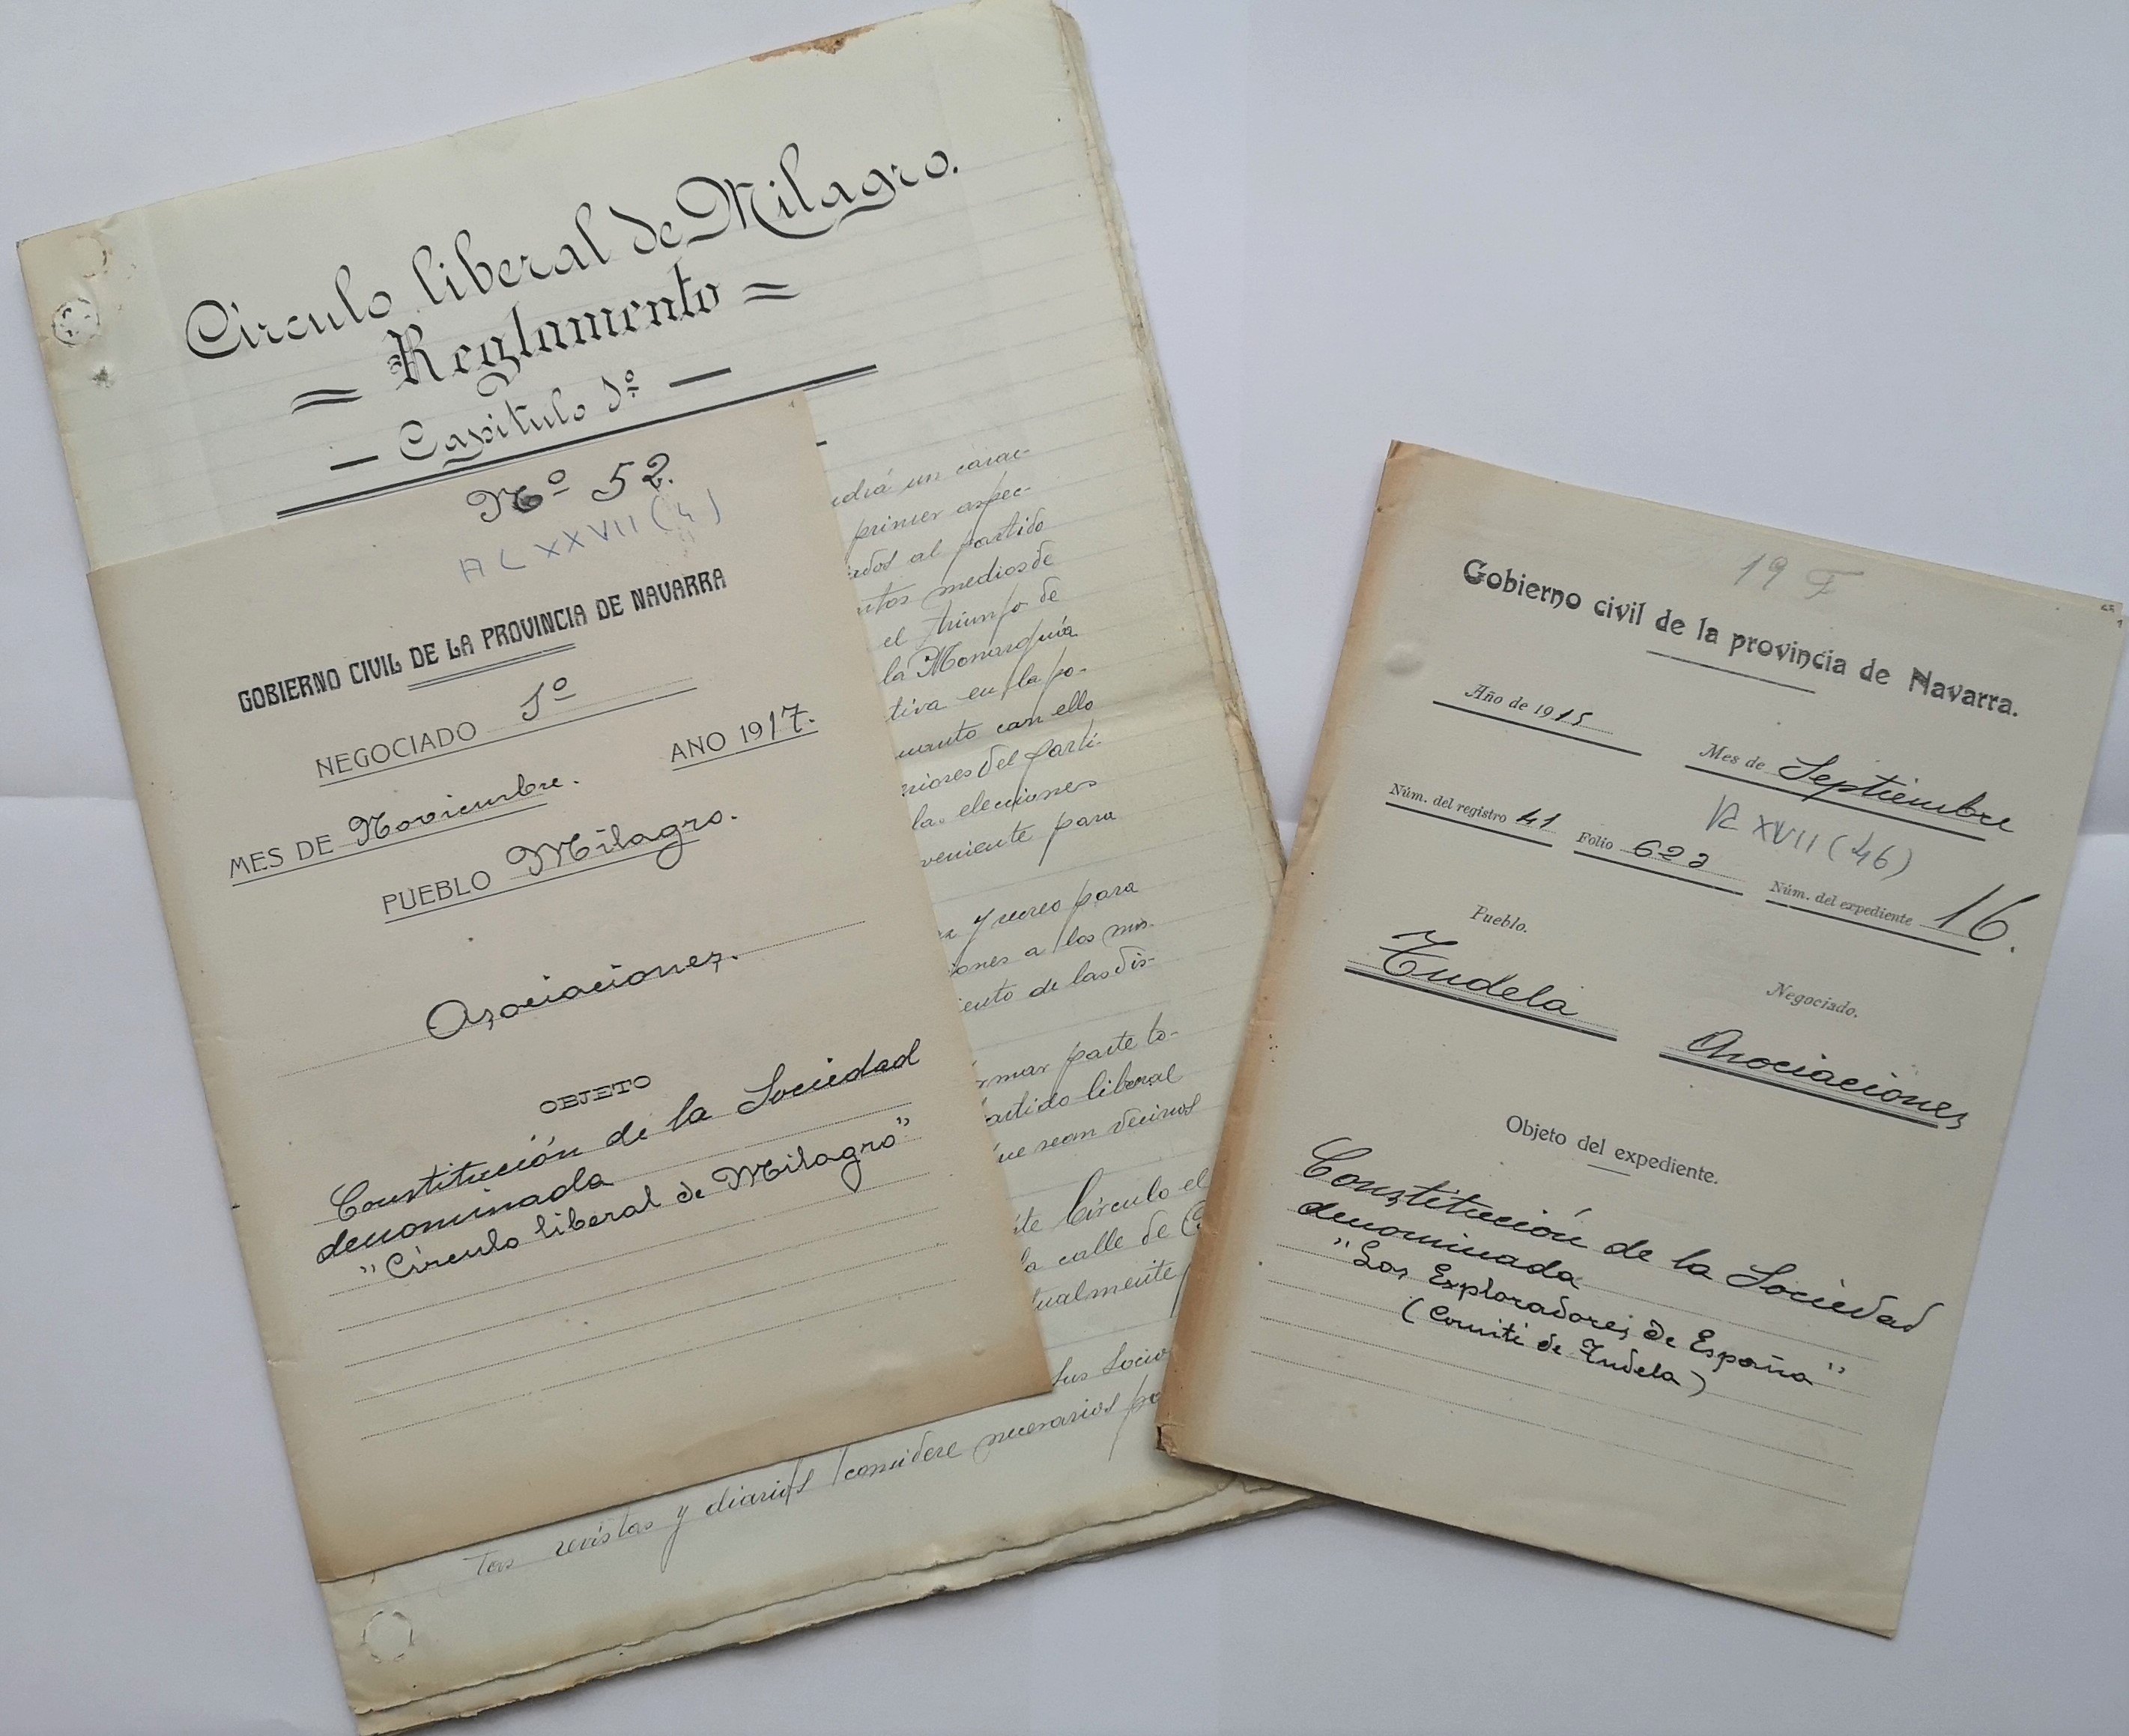 Círculo liberal de Milagro.
= Reglamento =
— Capitulo 1º —
Nº 52.
AC XXVII (4)
GOBIERNO CIVIL DE LA PROVINCIA DE NAVARRA
NEGOCIADO 1º
AÑO 1917.
MES DE Noviembre.
PUEBLO Milagro.
Asociaciones.
OBJETO
Constitución de la Sociedad
denominada
"Círculo liberal de Milagro"
un carac-
primer aspec-
al partido
medios de
el triunfo de
la Monarquía
en la po-
con ello
del parti-
elecciones
para
y recreo para
a los mis-
de las dis-
parte to-
liberal
sean vecinos
Círculo el
calle de
sus socio
tas revistas y diarios considere necesarios
19 F
Gobierno civil de la provincia de Navarra.
Año de 1915
Mes de Septiembre
R XVII (46)
Núm. del registro 41 Folio 622 Núm. del expediente 16.
Pueblo.
Tudela
Negociado.
Asociaciones
Objeto del expediente.
Constitución de la Sociedad
denominada
"Los Exploradores de España"
(Comité de Tudela)